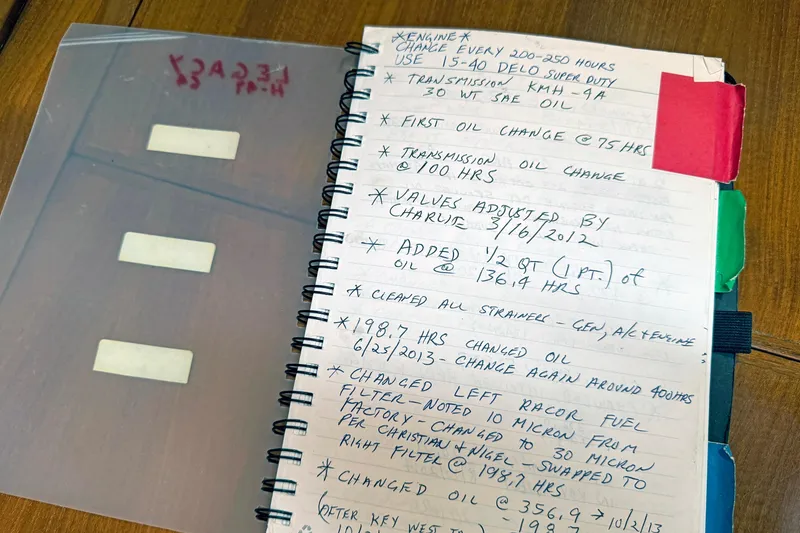 LEGACY
*ENGINE*
CHANGE EVERY 200-250 HOURS
USE 15-40 DELO SUPER DUTY
* TRANSMISSION KMH-4A
30 WT SAE OIL
* FIRST OIL CHANGE @ 75 HRS
* TRANSMISSION OIL CHANGE
@ 100 HRS
* VALVES ADJUSTED BY
CHARLIE 3/16/2012
* ADDED 1/2 QT (1 PT.) of
OIL @ 136.4 HRS
* CLEANED ALL STRAINERS - GEN, A/C + ENGINE
* 198.7 HRS CHANGED OIL
6/25/2013 - CHANGE AGAIN AROUND 400HRS
* CHANGED LEFT RACOR FUEL
FILTER - NOTED 10 MICRON FROM
FACTORY - CHANGED TO 30 MICRON
PER CHRISTIAN + NIGEL - SWAPPED TO
RIGHT FILTER @ 198.7 HRS
* CHANGED OIL @ 356.9 → 10/2/13
-198.7
(AFTER KEY WEST